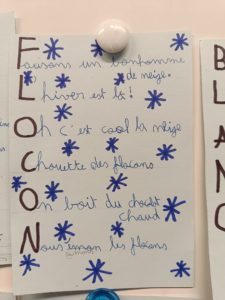 Faisons un bonhomme
de neige.
L'hiver est là !
Oh c'est cool la neige
Chouette des flocons
On boit du chocolat
chaud
Nous aimon les flocons
BLANC